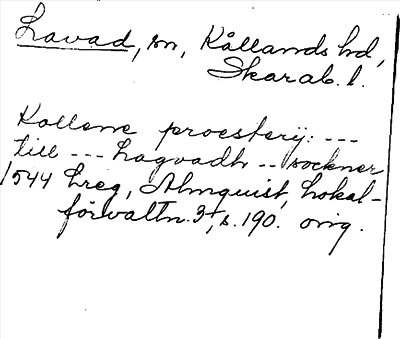 Lavad, sn, Kållands hd,
Skarab. l.
Kollene proesterij: ---
till --- Lagvadh -- sockner
1544 Lreg, Almquist, Lokal-
förvaltn. 3+, s. 190. orig.